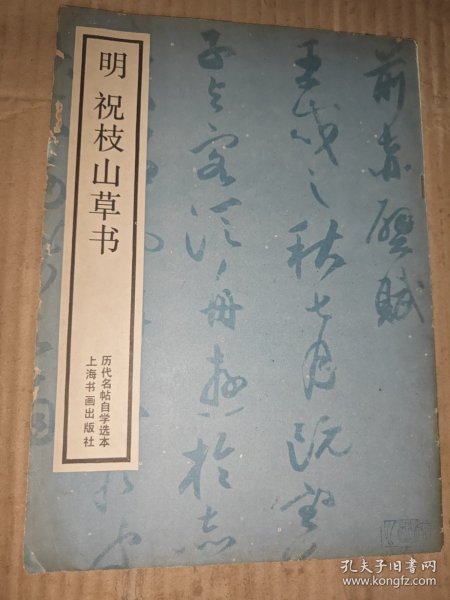 明 祝枝山草书
历代名帖自学选本
上海书画出版社
前赤壁賦
壬戌之秋七月既望
子与客泛舟遊於赤
孔夫子旧书网
www.kongfz.com